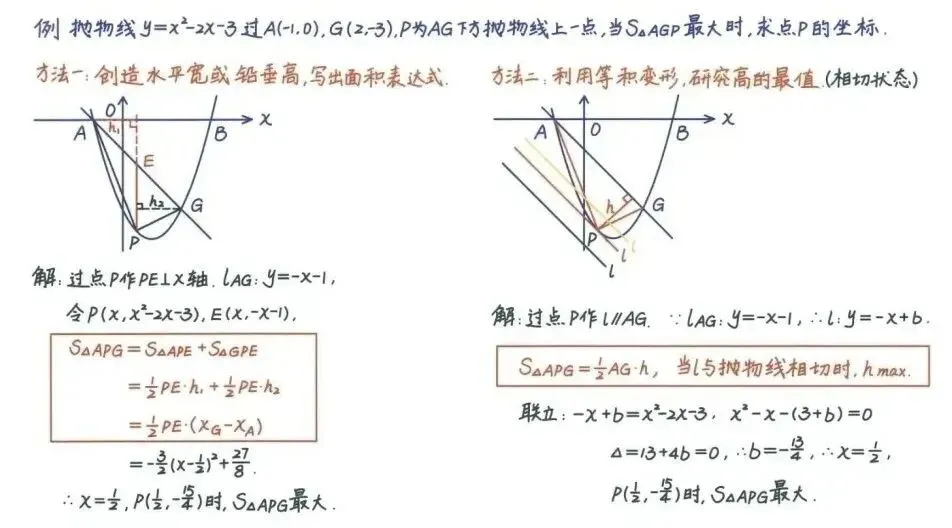 例 抛物线y=x²-2x-3过A(-1,0),G(2,-3),P为AG下方抛物线上一点,当S△AGP最大时,求点P的坐标.
方法一:创造水平宽或铅垂高,写出面积表达式.
O
x
A
h₁
B
E
h₂
G
P
解:过点P作PE⊥X轴. lAG:y=-x-1,
令P(x,x²-2x-3),E(x,-x-1),
S△APG=S△APE+S△GPE
=½PE·h₁+½PE·h₂
=½PE·(xG-xA)
=-3/2(x-½)²+27/8.
∴x=½,P(½,-15/4)时,S△APG最大.
方法二:利用等积变形,研究高的最值.(相切状态)
A
O
B
x
h
G
P
l
l
l
解:过点P作l∥AG. ∵lAG:y=-x-1,∴l:y=-x+b.
S△APG=½AG·h, 当l与抛物线相切时,h max.
联立:-x+b=x²-2x-3, x²-x-(3+b)=0
△=13+4b=0,∴b=-13/4,∴x=½,
P(½,-15/4)时,S△APG最大.